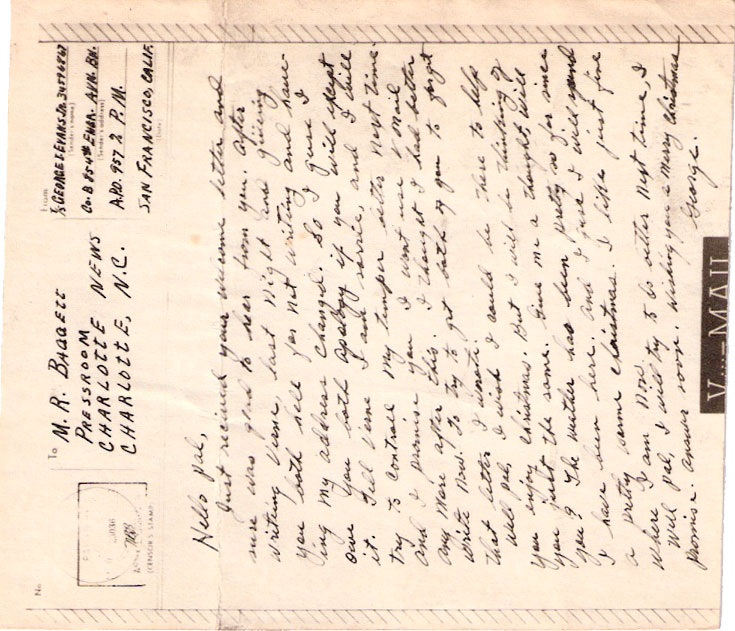 No.
To
M. R. BAGGETT
PRESSROOM
CHARLOTTE NEWS
CHARLOTTE, N.C.
From
GEORGE E EVANS JR. 34596867
(Sender's name)
Co. B 854th ENGR. AVN. BN.
(Sender's address)
A.P.O. 957 % P.M.
SAN FRANCISCO, CALIF.
(Date)
(CENSOR'S STAMP)
Hello Pal,
Just received your welcome letter and
sure was glad to hear from you. After
writing Verne, last night and giving
you both hell for not writing and have-
ing my address changed. So I guess I
owe you both apology if you will except
it. Tell Verne I am sorrie, and I will
try to controll my temper after next time.
and I promise you I wont use V mail
any more after this. I thought I had better
write now. To try to get both of you to forget
that letter I wrote.
Well pal, I wish I could be there to help
you enjoy Christmas. But I will be thinking of
you just the same. Give me a thought, will
you? The weather has been pretty so far since
I have been here. and I guess I will spend
a pretty warme Christmas. I like just fine
where I am now.
Well pal, I will try to do better next time, I
promise. Answer soon. Wishing you a Merry Christmas
George.
V...-MAIL